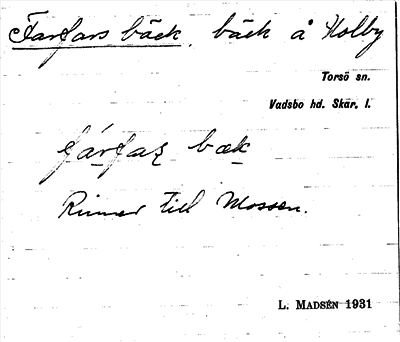 Farfars bäck, bäck å Holby
Torsö sn.
Vadsbo hd. Skar. l.
fárfaʒ bæk
Rinner till Mossen.
L. MADSÉN 1931